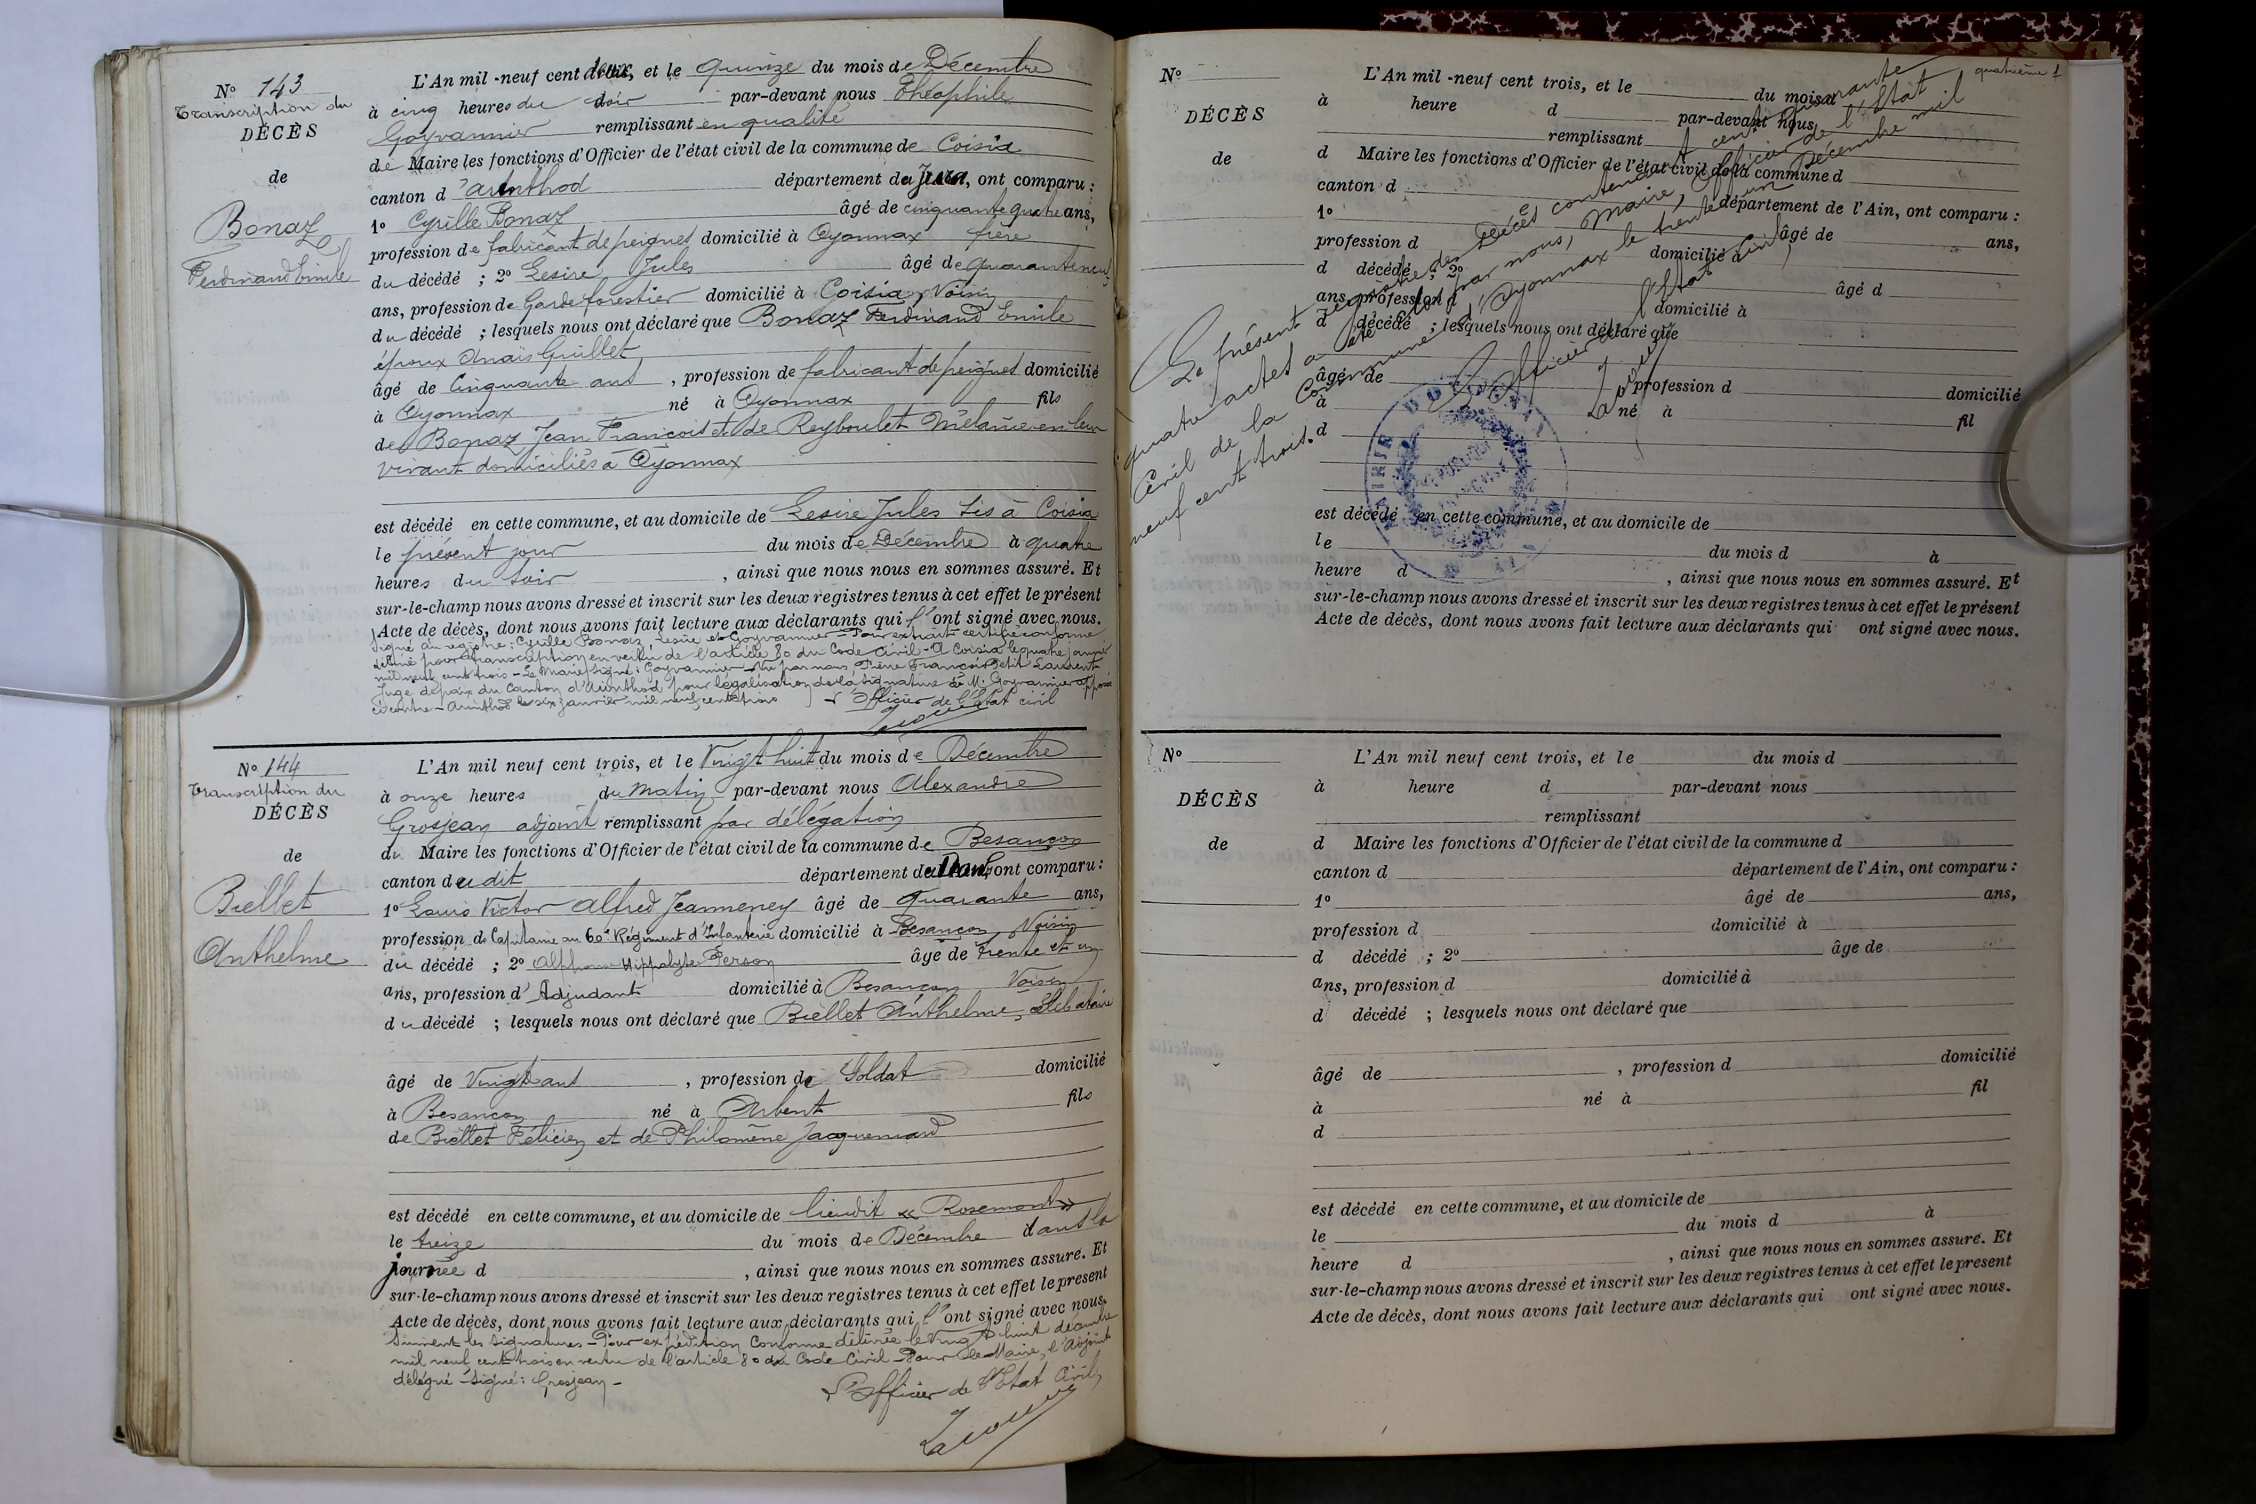 N° 143
Transcription du
DÉCÈS
de
Bonaz
Ferdinand Emile
L'An mil-neuf cent deux, et le quinze du mois de Décembre
à cinq heures du soir par-devant nous Théophile
Goyvannier remplissant en qualité
de Maire les fonctions d'Officier de l'état civil de la commune de Coisia
canton d'Arinthod département du Jura, ont comparu :
1° Cyrille Bonaz âgé de cinquante quatre ans,
profession de fabricant de peignes domicilié à Oyonnax frère
du décédé ; 2° Lesire Jules âgé de quarante neuf
ans, profession de Garde forestier domicilié à Coisia, Voisin
du décédé ; lesquels nous ont déclaré que Bonaz Ferdinand Emile
époux Anaïs Guillet
âgé de Cinquante ans, profession de fabricant de peignes domicilié
à Oyonnax né à Oyonnax fils
de Bonaz Jean François et de Reyboulet Mélanie en leur
vivant domiciliés à Oyonnax
est décédé en cette commune, et au domicile de Lesire Jules sis à Coisia
le présent jour du mois de Décembre à quatre
heures du soir, ainsi que nous nous en sommes assuré. Et
sur-le-champ nous avons dressé et inscrit sur les deux registres tenus à cet effet le présent
Acte de décès, dont nous avons fait lecture aux déclarants qui l'ont signé avec nous.
Signé au registre : Cyrille Bonaz Lesire et Goyvannier - Pour extrait certifié conforme
délivré pour transcription en vertu de l'article 80 du Code Civil - A Coisia le quatre janvier
mil neuf cent trois - Le Maire signé : Goyvannier - Vu par nous François Petit Laurent
Juge de paix du Canton d'Arinthod pour légalisation de la signature de M. Goyvannier apposée
ci contre - Arinthod le six janvier mil neuf cent trois L'Officier de l'état civil
N° 144
Transcription du
DÉCÈS
de
Biellet
Anthelme
L'An mil neuf cent trois, et le Vingt huit du mois de Décembre
à onze heures du Matin par-devant nous Alexandre
Grosjean adjoint remplissant par délégation
du Maire les fonctions d'Officier de l'état civil de la commune de Besançon
canton dudit département du Doubs, ont comparu :
1° Louis Victor Alfred Jeanneney âgé de quarante ans,
profession de Capitaine au 60e Régiment d'Infanterie domicilié à Besançon Voisin
du décédé ; 2° Alphonse Hippolyte Person âge de trente et un
ans, profession d'Adjudant domicilié à Besançon Voisin
du décédé ; lesquels nous ont déclaré que Biellet Anthelme, célibataire
âgé de Vingt ans, profession de Soldat domicilié
à Besançon né à Arbent fils
de Biellet Félicien et de Philomène Jacquemard
est décédé en cette commune, et au domicile de lieudit « Rosemont »
le treize du mois de Décembre dans la
journée d , ainsi que nous nous en sommes assuré. Et
sur-le-champ nous avons dressé et inscrit sur les deux registres tenus à cet effet le présent
Acte de décès, dont nous avons fait lecture aux déclarants qui l'ont signé avec nous.
Suivent les signatures - Pour expédition Conforme délivrée le Vingt huit décembre
mil neuf cent trois en vertu de l'article 80 du Code Civil - Pour le Maire, l'Adjoint
délégué - Signé : Grosjean -
L'Officier de l'Etat Civil
N°
DÉCÈS
de
L'An mil-neuf cent trois, et le du mois d
à heure d par-devant nous
remplissant
d Maire les fonctions d'Officier de l'état civil de la commune d
canton d département de l'Ain, ont comparu :
1° âgé de ans,
profession d domicilié à
d décédé ; 2° âgé d
ans, profession d domicilié à
d décédé ; lesquels nous ont déclaré que
âgé de , profession d domicilié
à né à fil
d
est décédé en cette commune, et au domicile de
le du mois d à
heure d , ainsi que nous nous en sommes assuré. Et
sur-le-champ nous avons dressé et inscrit sur les deux registres tenus à cet effet le présent
Acte de décès, dont nous avons fait lecture aux déclarants qui ont signé avec nous.
quatrième 1
Le présent registre des Décès contenant cent quarante
quatre actes a été clos par nous, Maire, Officier de l'Etat
Civil de la Commune d'Oyonnax le trente un Décembre mil
neuf cent trois.
L'Officier de l'Etat Civil
MAIRIE D'OYONNAX
AIN
N°
DÉCÈS
de
L'An mil neuf cent trois, et le du mois d
à heure d par-devant nous
remplissant
d Maire les fonctions d'Officier de l'état civil de la commune d
canton d département de l'Ain, ont comparu :
1° âgé de ans,
profession d domicilié à
d décédé ; 2° âge de
ans, profession d domicilié à
d décédé ; lesquels nous ont déclaré que
âgé de , profession d domicilié
à né à fil
d
est décédé en cette commune, et au domicile de
le du mois d à
heure d , ainsi que nous nous en sommes assuré. Et
sur-le-champ nous avons dressé et inscrit sur les deux registres tenus à cet effet le présent
Acte de décès, dont nous avons fait lecture aux déclarants qui ont signé avec nous.